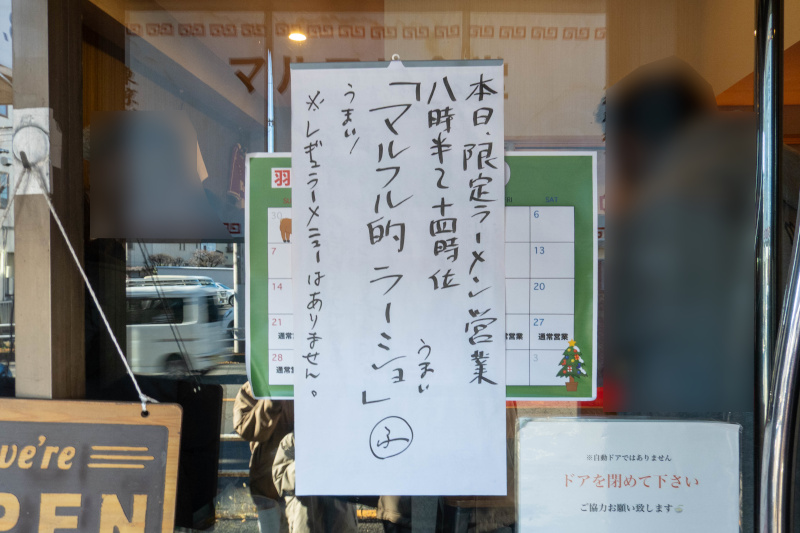 本日、限定ラーメン営業
八時半〜十四時位
「マルフル的 ラーショ」
うまい
うまい!
※レギュラーメニューはありません。
羽
30
7
14
21
28
通常営業
通常営業
SAT
6
13
20
27
3
通常営業
通常営業
we're
OPEN
※自動ドアではありません
ドアを閉めて下さい
ご協力お願い致します